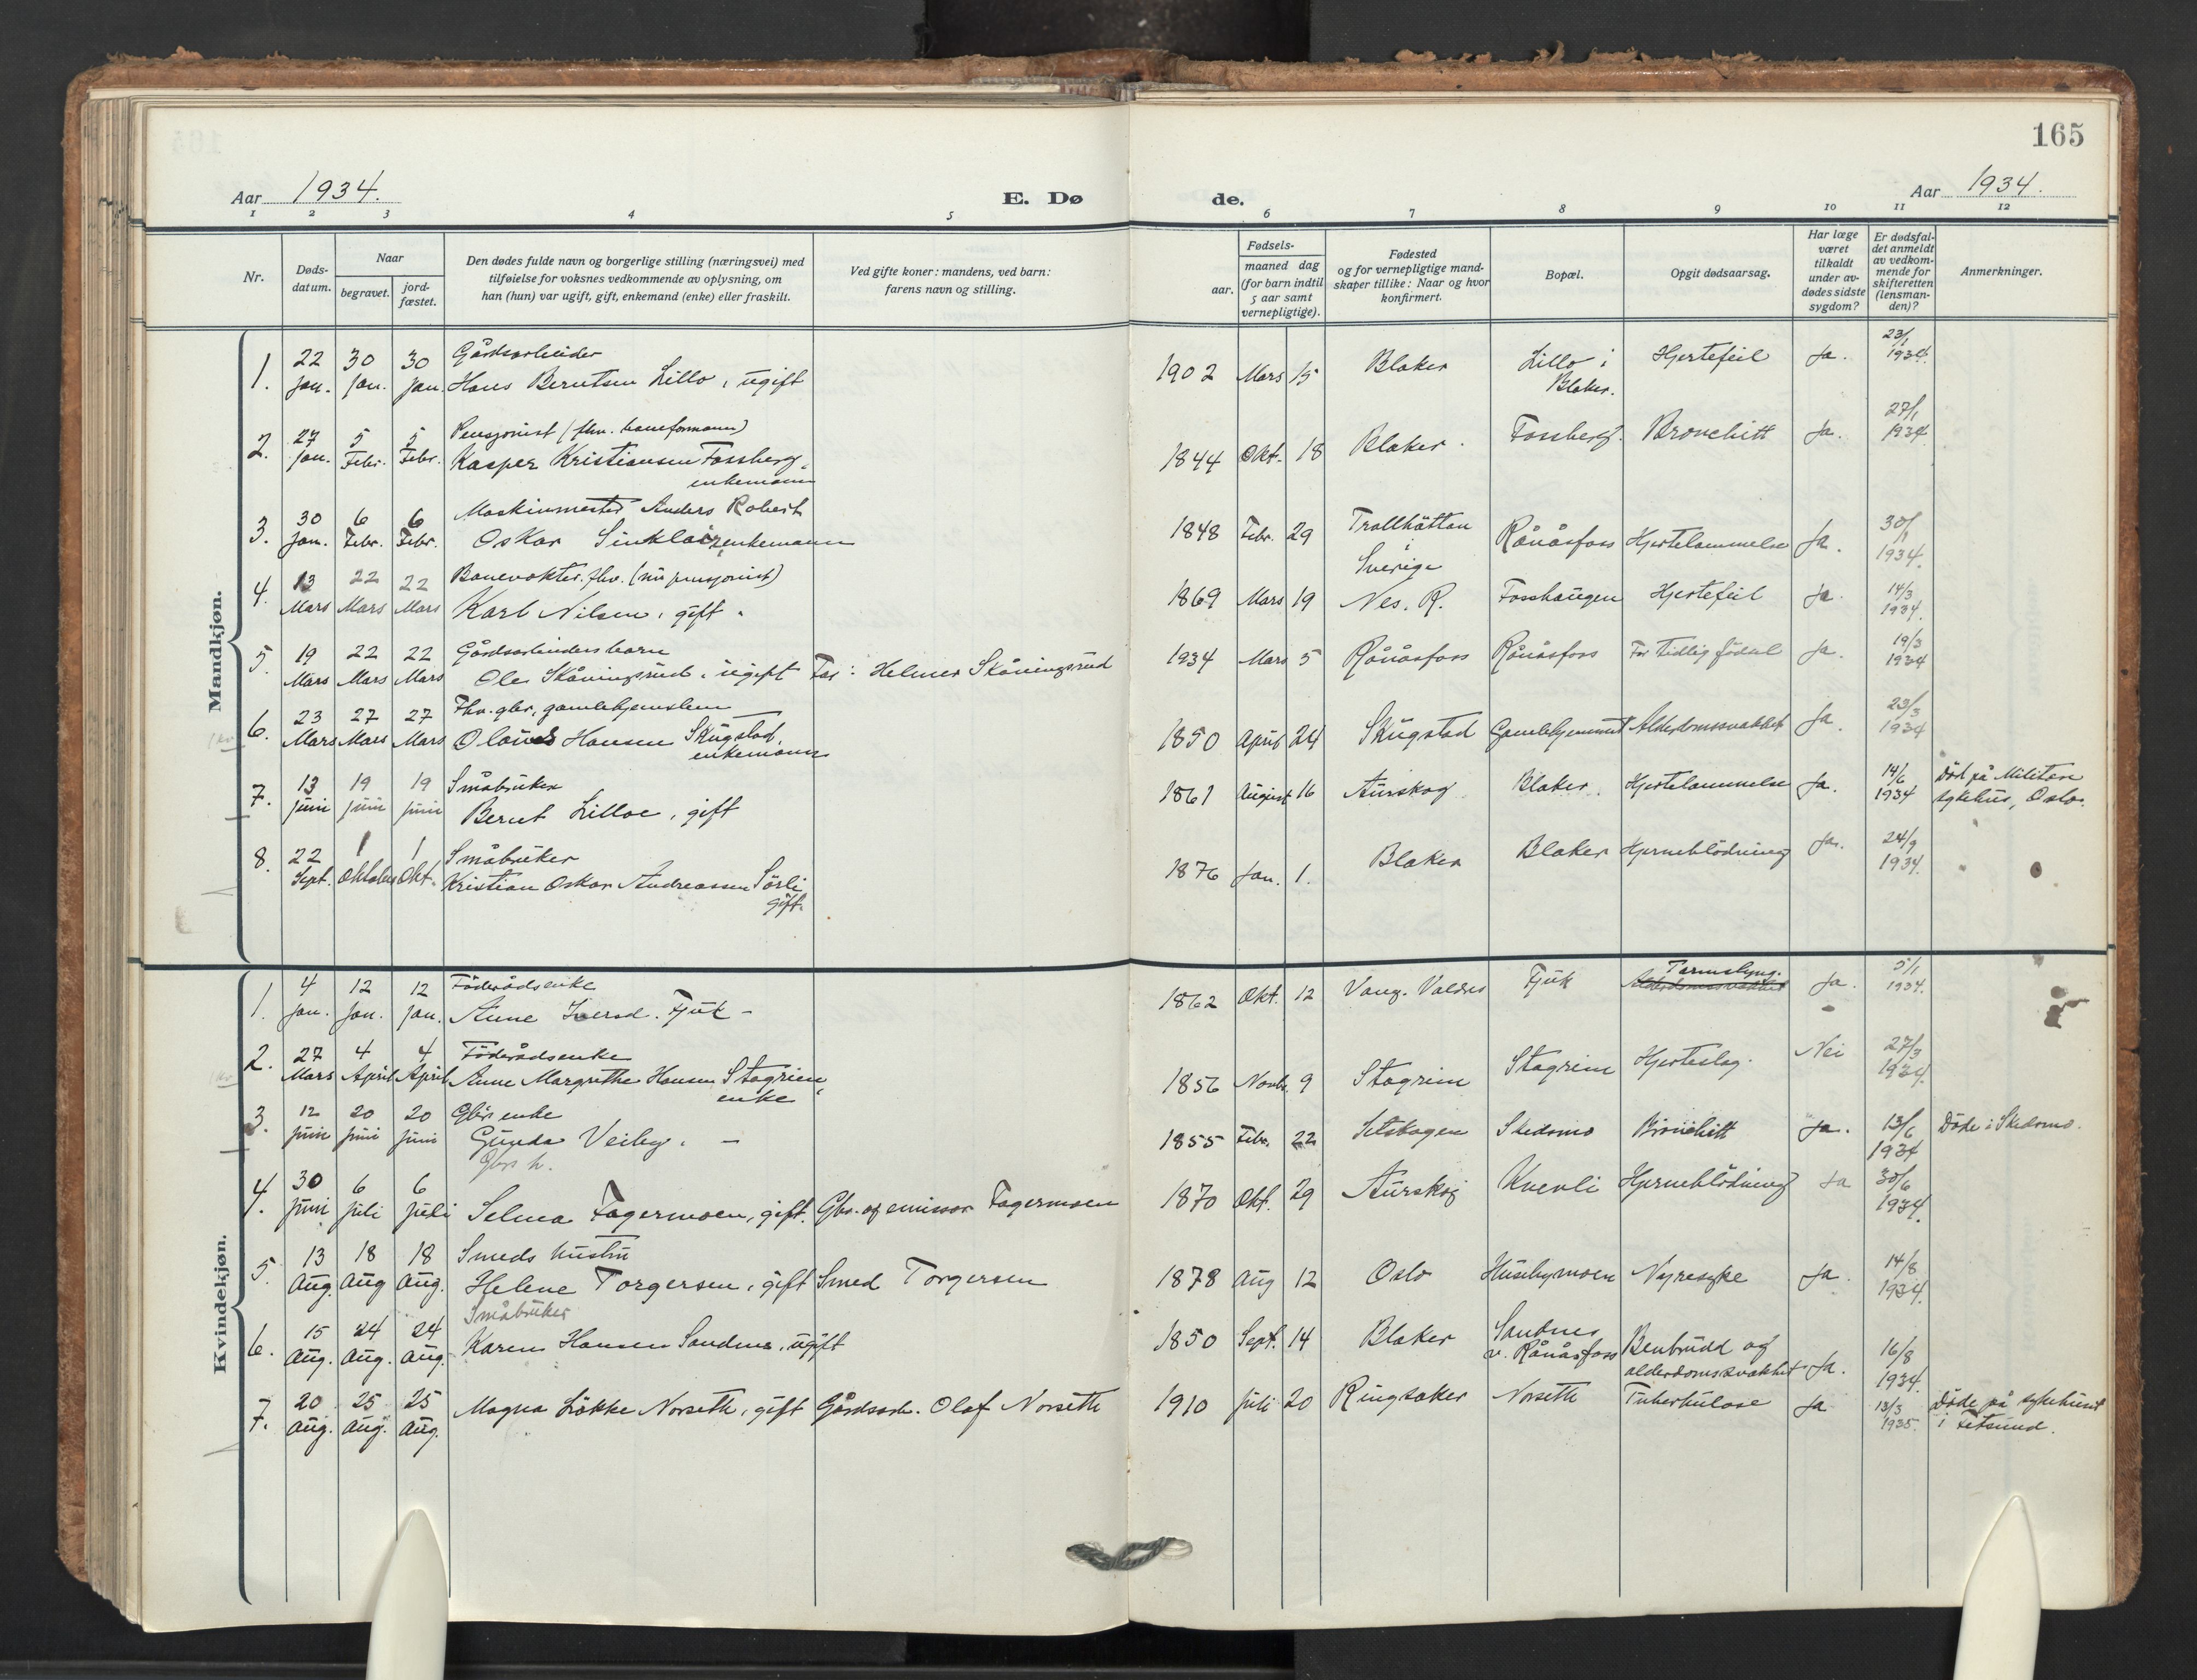 165
Aar 1934.
E. Dø
de.
Aar 1934.
1 2 3 4 5 6 7 8 9 10 11 12
Nr.
Døds-
datum.
Naar
begravet.
jord-
fæstet.
Den dødes fulde navn og borgerlige stilling (næringsvei) med
tilføielse for voksnes vedkommende av oplysning, om
han (hun) var ugift, gift, enkemand (enke) eller fraskilt.
Ved gifte koner: mandens, ved barn:
farens navn og stilling.
Fødsels-
aar.
maaned dag
(for barn indtil
5 aar samt
vernepligtige).
Fødested
og for vernepligtige mand-
skaper tillike: Naar og hvor
konfirmert.
Bopæl.
Opgit dødsaarsag.
Har læge
været
tilkaldt
under av-
dødes sidste
sygdom?
Er dødsfal-
det anmeldt
av vedkom-
mende for
skifteretten
(lensman-
den)?
Anmerkninger.
Mandkjøn.
1. 22 Jan. 30 Jan. 30 Jan. Gårdsarbeider
Hans Berntsen Lillo, ugift
1902 Mars 15 Blaker Lillo i Blaker. Hjertefeil Ja. 23/1 1934.
2. 27 Jan. 5 Febr. 5 Febr. Pensjonist (fhv. baneformann)
Kasper Kristiansen Fossberg,
enkemann
1844 Okt. 18 Blaker. Fossberg. Bronchitt Ja. 27/1 1934.
3. 30 Jan. 6 Febr. 6 Febr. Maskinmester Anders Robert
Oskar Sinklair, enkemann
1848 Febr. 29 Trollhättan i Sverige Rånåsfoss Hjertelammelse Ja. 30/1 1934.
4. 13 Mars 22 Mars 22 Mars Banevokter, fhv. (nu pensjonist)
Karl Nilsen, gift.
1869 Mars 19 Nes. R. Fosshaugen Hjertefeil Ja. 14/3 1934.
5. 19 Mars 22 Mars 22 Mars Gårdsarbeiders barn
Ole Skåningsrud, ugift Far: Helmer Skåningsrud
1934 Mars 5 Rånåsfoss Rånåsfoss For tidlig födsel Ja. 19/3 1934
6. 23 Mars 27 Mars 27 Mars Fhv. gbr, gamlehjemslem
Olaus Hansen Skugstad,
enkemann
1850 April 24 Skugstad Gamlehjemmet Alderdomssvakhet Ja. 23/3 1934
7. 13 juni 19 juni 19 juni Småbruker
Bernt Lilloe, gift
1861 August 16 Aurskog Blaker. Hjertelammelse Ja. 14/6 1934 Död på Militære
sykehus, Oslo.
8. 22 Sept. 1 Oktober 1 Okt. Småbruker
Kristian Oskar Andreassen Sörli
gift.
1876 Jan. 1. Blaker Blaker Hjerneblödning Ja. 24/9 1934.
Kvindekjøn.
1. 4 Jan. 12 Jan. 12 Jan. Föderådsenke
Anne Iversd. Fjuk -
1862 Okt. 12 Vang. Valdres Fjuk Tarmslyng. Alderdomssvakhet Ja. 5/1 1934.
2. 27 Mars 4 April 4 April Föderådsenke
Anne Margrethe Hansen Stagrim,
enke
1856 Novbr. 9 Stagrim Stagrim Hjerteslag. Nei 27/3 1934.
3. 12 juni 20 juni 20 juni Gbrs enke
Gunda Veiby. -
1855 Febr. 22 Setskogen Skedsmo Bronchitt Ja. 13/6 1934 Döde i Skedsmo.
4. 30 juni 6 juli 6 juli Gbrs h.
Selma Fagermoen, gift. Gbr. og emissær Fagermoen
1870 Okt. 29 Aurskog Knevli Hjerneblödning Ja 30/6 1934.
5. 13 Aug. 18 Aug 18 Aug. Smeds hustru
Helene Torgersen, gift Smed Torgersen
1878 Aug 12 Oslo Husebymoen Nyresyke Ja. 14/8 1934.
6. 15 Aug. 24 Aug. 24 Aug. Småbruker
Karen Hansen Sandnes, ugift
1850 Sept. 14 Blaker Sandnes v. Rånåsfoss Benbrudd og
alderdomssvakhet Ja. 16/8 1934.
7. 20 Aug. 25 Aug. 25 Aug. Magna Lökke Norseth, gift Gårdsarb. Olaf Norseth
1910 juli 20 Ringsaker Norseth Tuberkulose Ja 13/3 1935. Döde på sykehuset
i Fetsund.